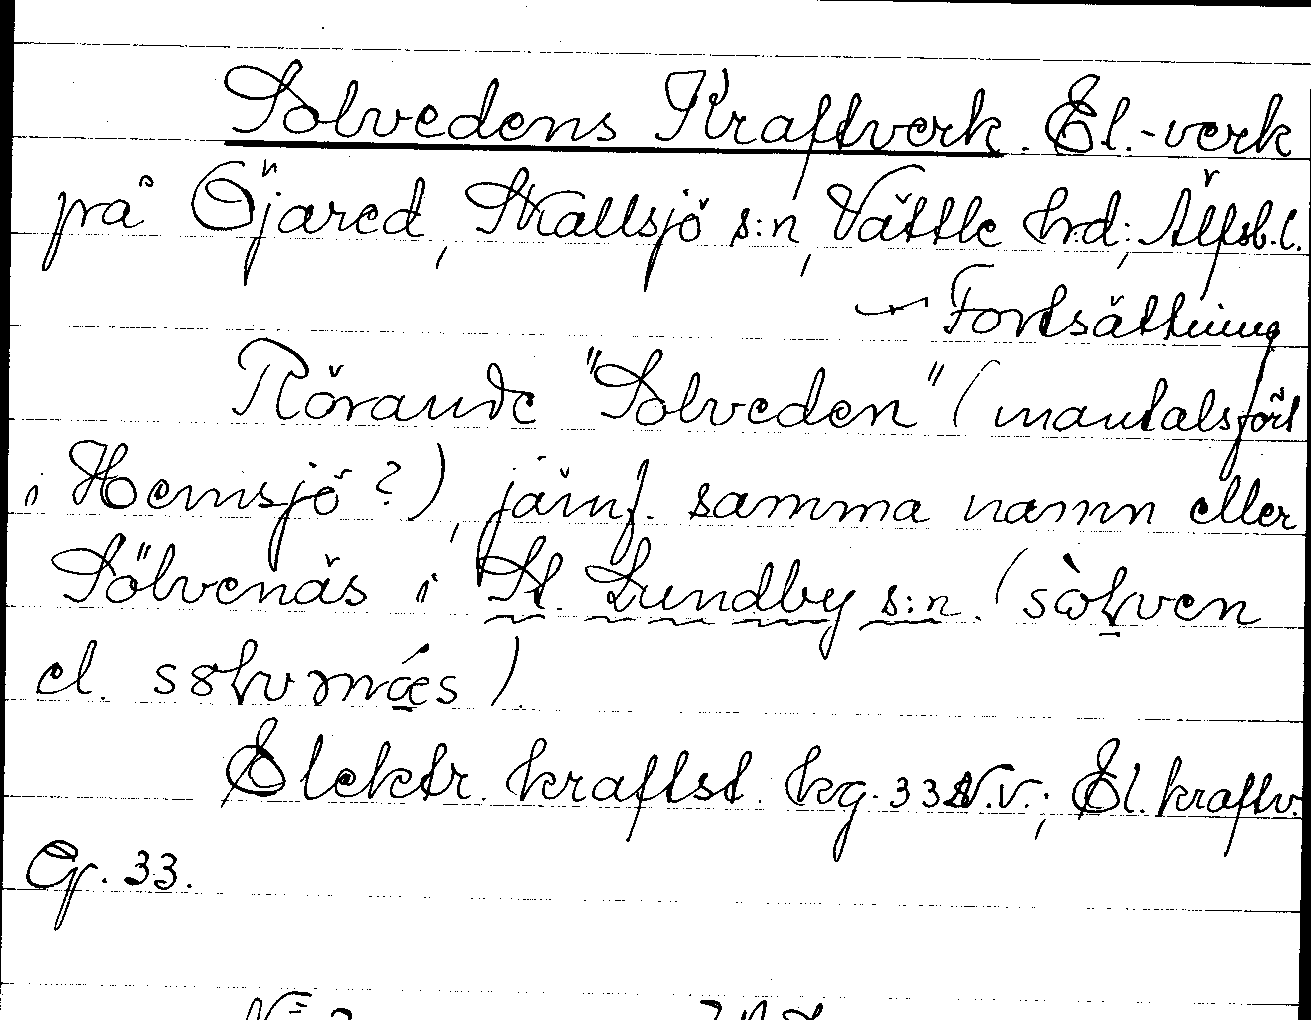 Solvedens Kraftverk. El.-verk
på Öjared, Skallsjö s:n, Vättle hrd; Älfsb. l.
Fortsättning
Rörande "Solveden" (mantalsfört
i Hemsjö?), jämf. samma namn eller
Sölvenäs i St. Lundby s:n. (
el.
Elektr. kraftst. kg. 33 N.V.; El. kraftv.
33.